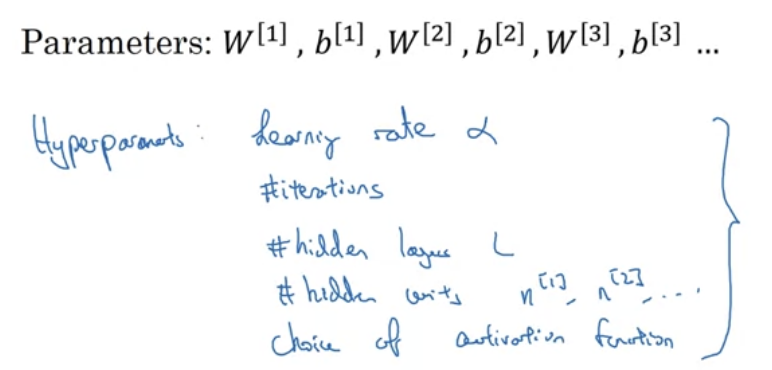 Parameters: W^[1] , b^[1] , W^[2] , b^[2] , W^[3] , b^[3] ...
Hyperparamets : Learning rate α
#iterations
#hidden layers L
# hidden units n^[1], n^[2], ....
Choice of activation function